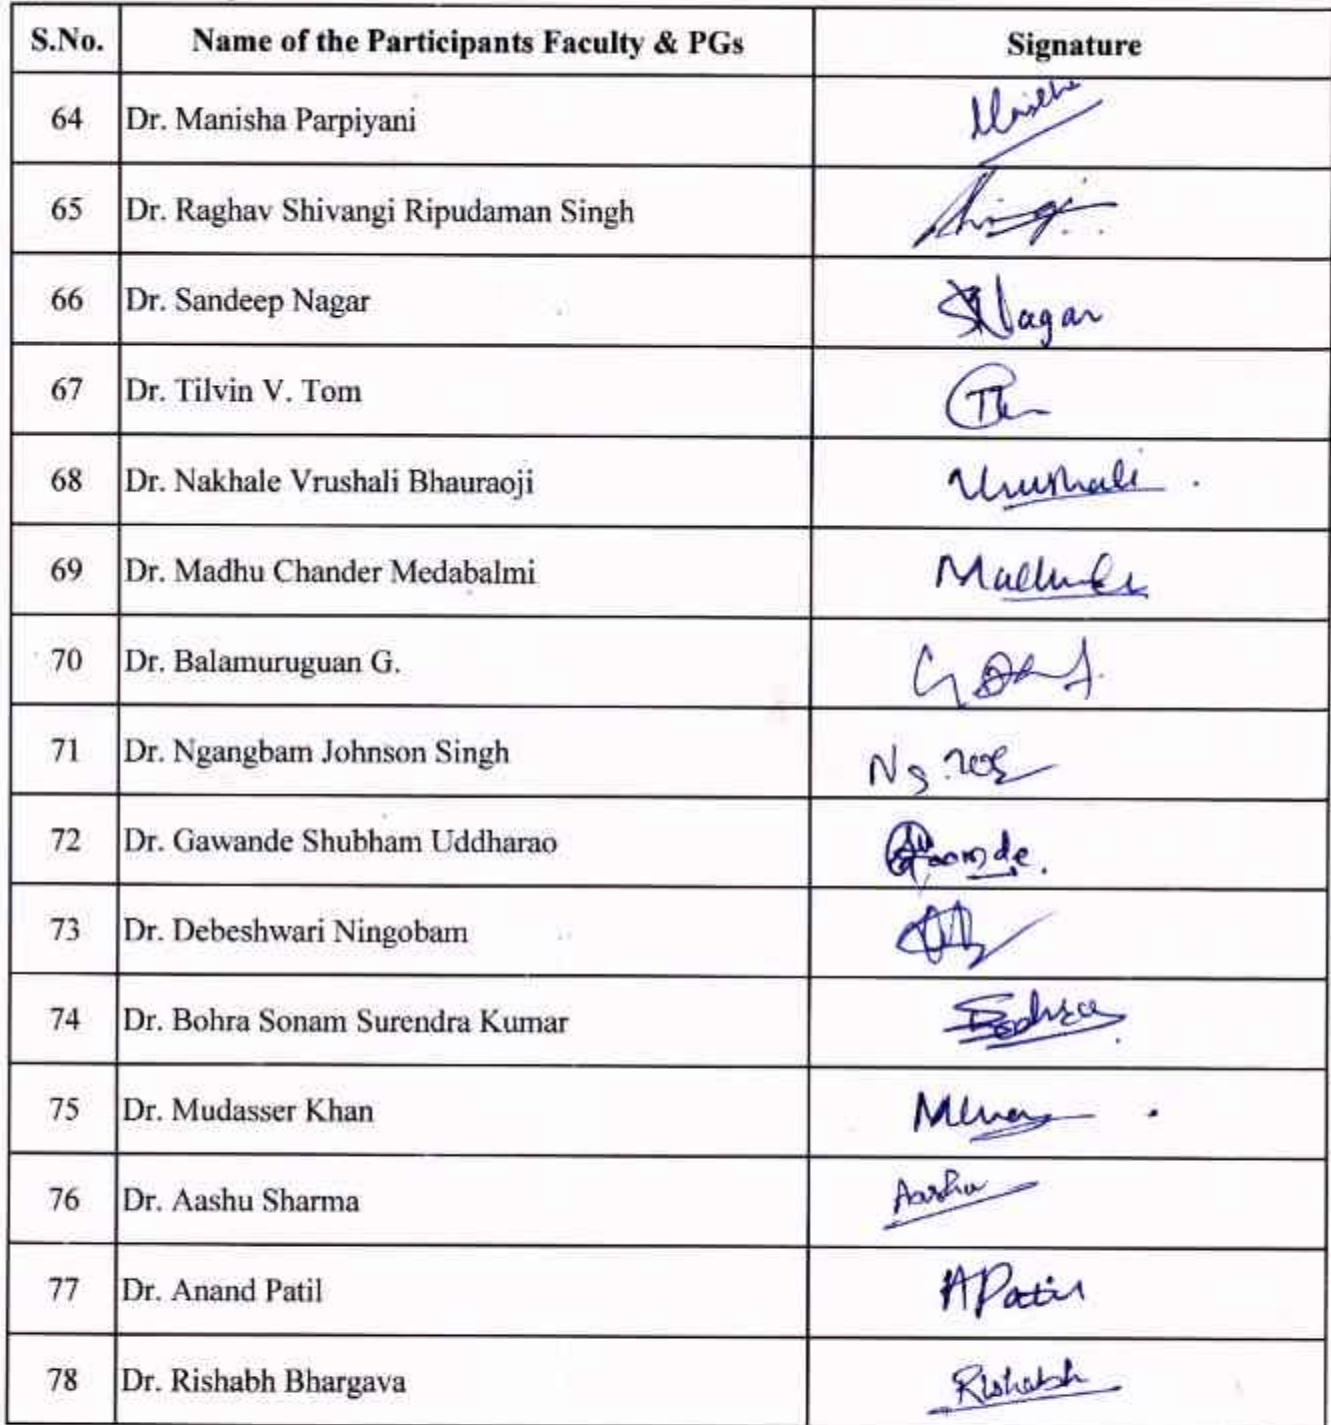 S.No. Name of the Participants Faculty & PGs Signature
64 Dr. Manisha Parpiyani
65 Dr. Raghav Shivangi Ripudaman Singh
66 Dr. Sandeep Nagar SNagar
67 Dr. Tilvin V. Tom
68 Dr. Nakhale Vrushali Bhauraoji Vrushali
69 Dr. Madhu Chander Medabalmi
70 Dr. Balamuruguan G.
71 Dr. Ngangbam Johnson Singh
72 Dr. Gawande Shubham Uddharao
73 Dr. Debeshwari Ningobam
74 Dr. Bohra Sonam Surendra Kumar
75 Dr. Mudasser Khan
76 Dr. Aashu Sharma Aashu
77 Dr. Anand Patil APatil
78 Dr. Rishabh Bhargava Rishabh